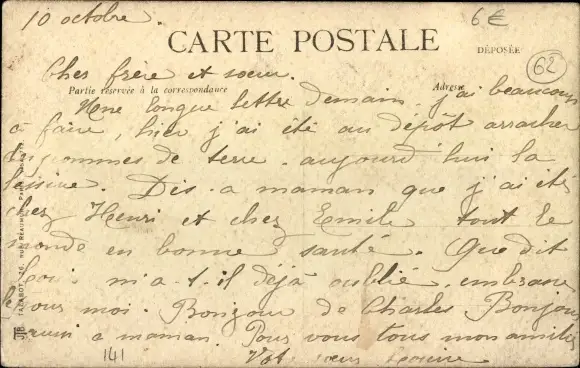 10 octobre.
6€
CARTE POSTALE
DÉPOSÉE
62
Cher frère et sœur.
Partie réservée à la correspondance
Adresse
Une longue lettre demain, j'ai beaucoup
à faire, hier j'ai été au dépôt arracher
des pommes de terre. aujourd'hui la
lessive. Dis a maman que j'ai été
chez Henri et chez Emile tout le
monde en bonne santé. Que dit
m'a-t-il déjà oublié, embrasse
le pour moi. Bonjour de Charles Bonjour
aussi a maman. Pour vous tous mon amitié
Votre sœur
141
RUE RÉAUMUR, PARIS
JTB